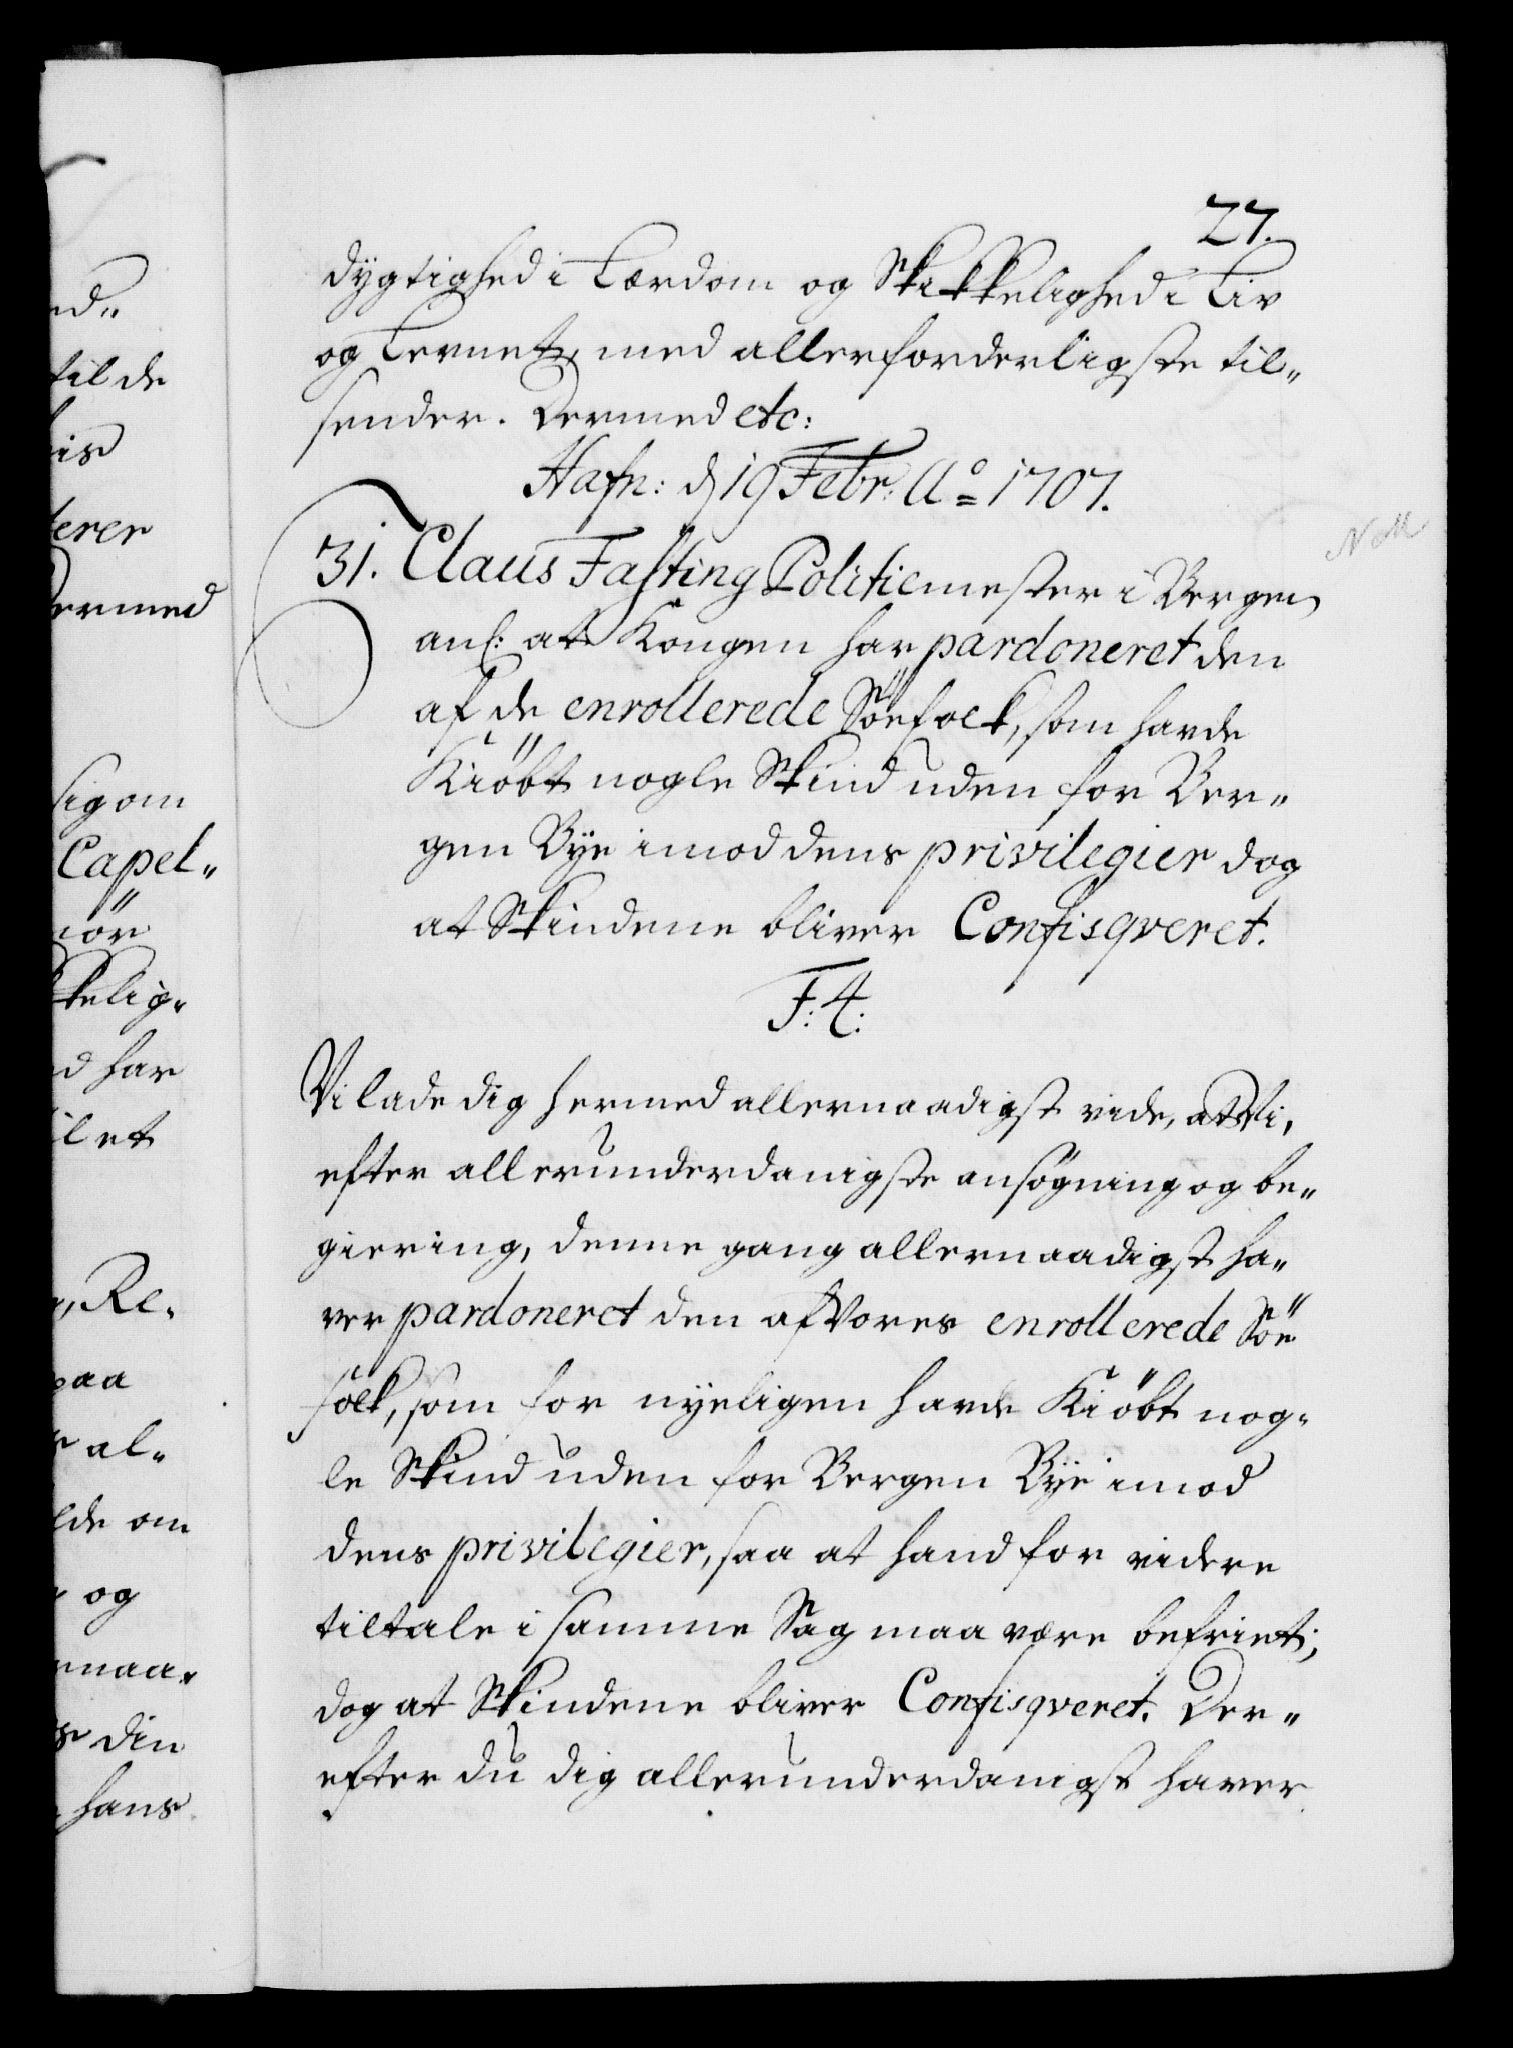 27.
dygtighed i Lærdom og Skikkelighed i Liv
og Levnet, med allerforderligste til„
sender. Dermed etc:
Hafn: d 19 Febr: Aº 1707.
31. Claus Fasting Politiemester i Bergen
anl: at Kongen har pardoneret den
af de enrollerede Söefolk, som hafde
Kiöbt nogle Skind uden for Ber„
gen Bÿe imod dens privilegier dog
at Skindene bliver Confisqveret.
F: 4:
Vi lade dig hermed allernaadigst vide, at Vi,
efter allerunderdanigste ansögning og be„
giering, denne gang allernaadigst ha„
ver pardoneret den af Vores enrollerede Söe
folk, som for nÿeligen hafde Kiöbt nog„
le Skind uden for Bergen Bÿe imod
dens privilegier, saa at hand for videre
tiltale i samme Sag maa være befriet;
dog at Skindene bliver Confisqveret. Der„
efter du dig allerunderdanigst haver
til de
erer
ermed
sig om
Capel„
kelig„
d har
il et
Re„
paa
al„
lde om
og
rnaa„
din
hans